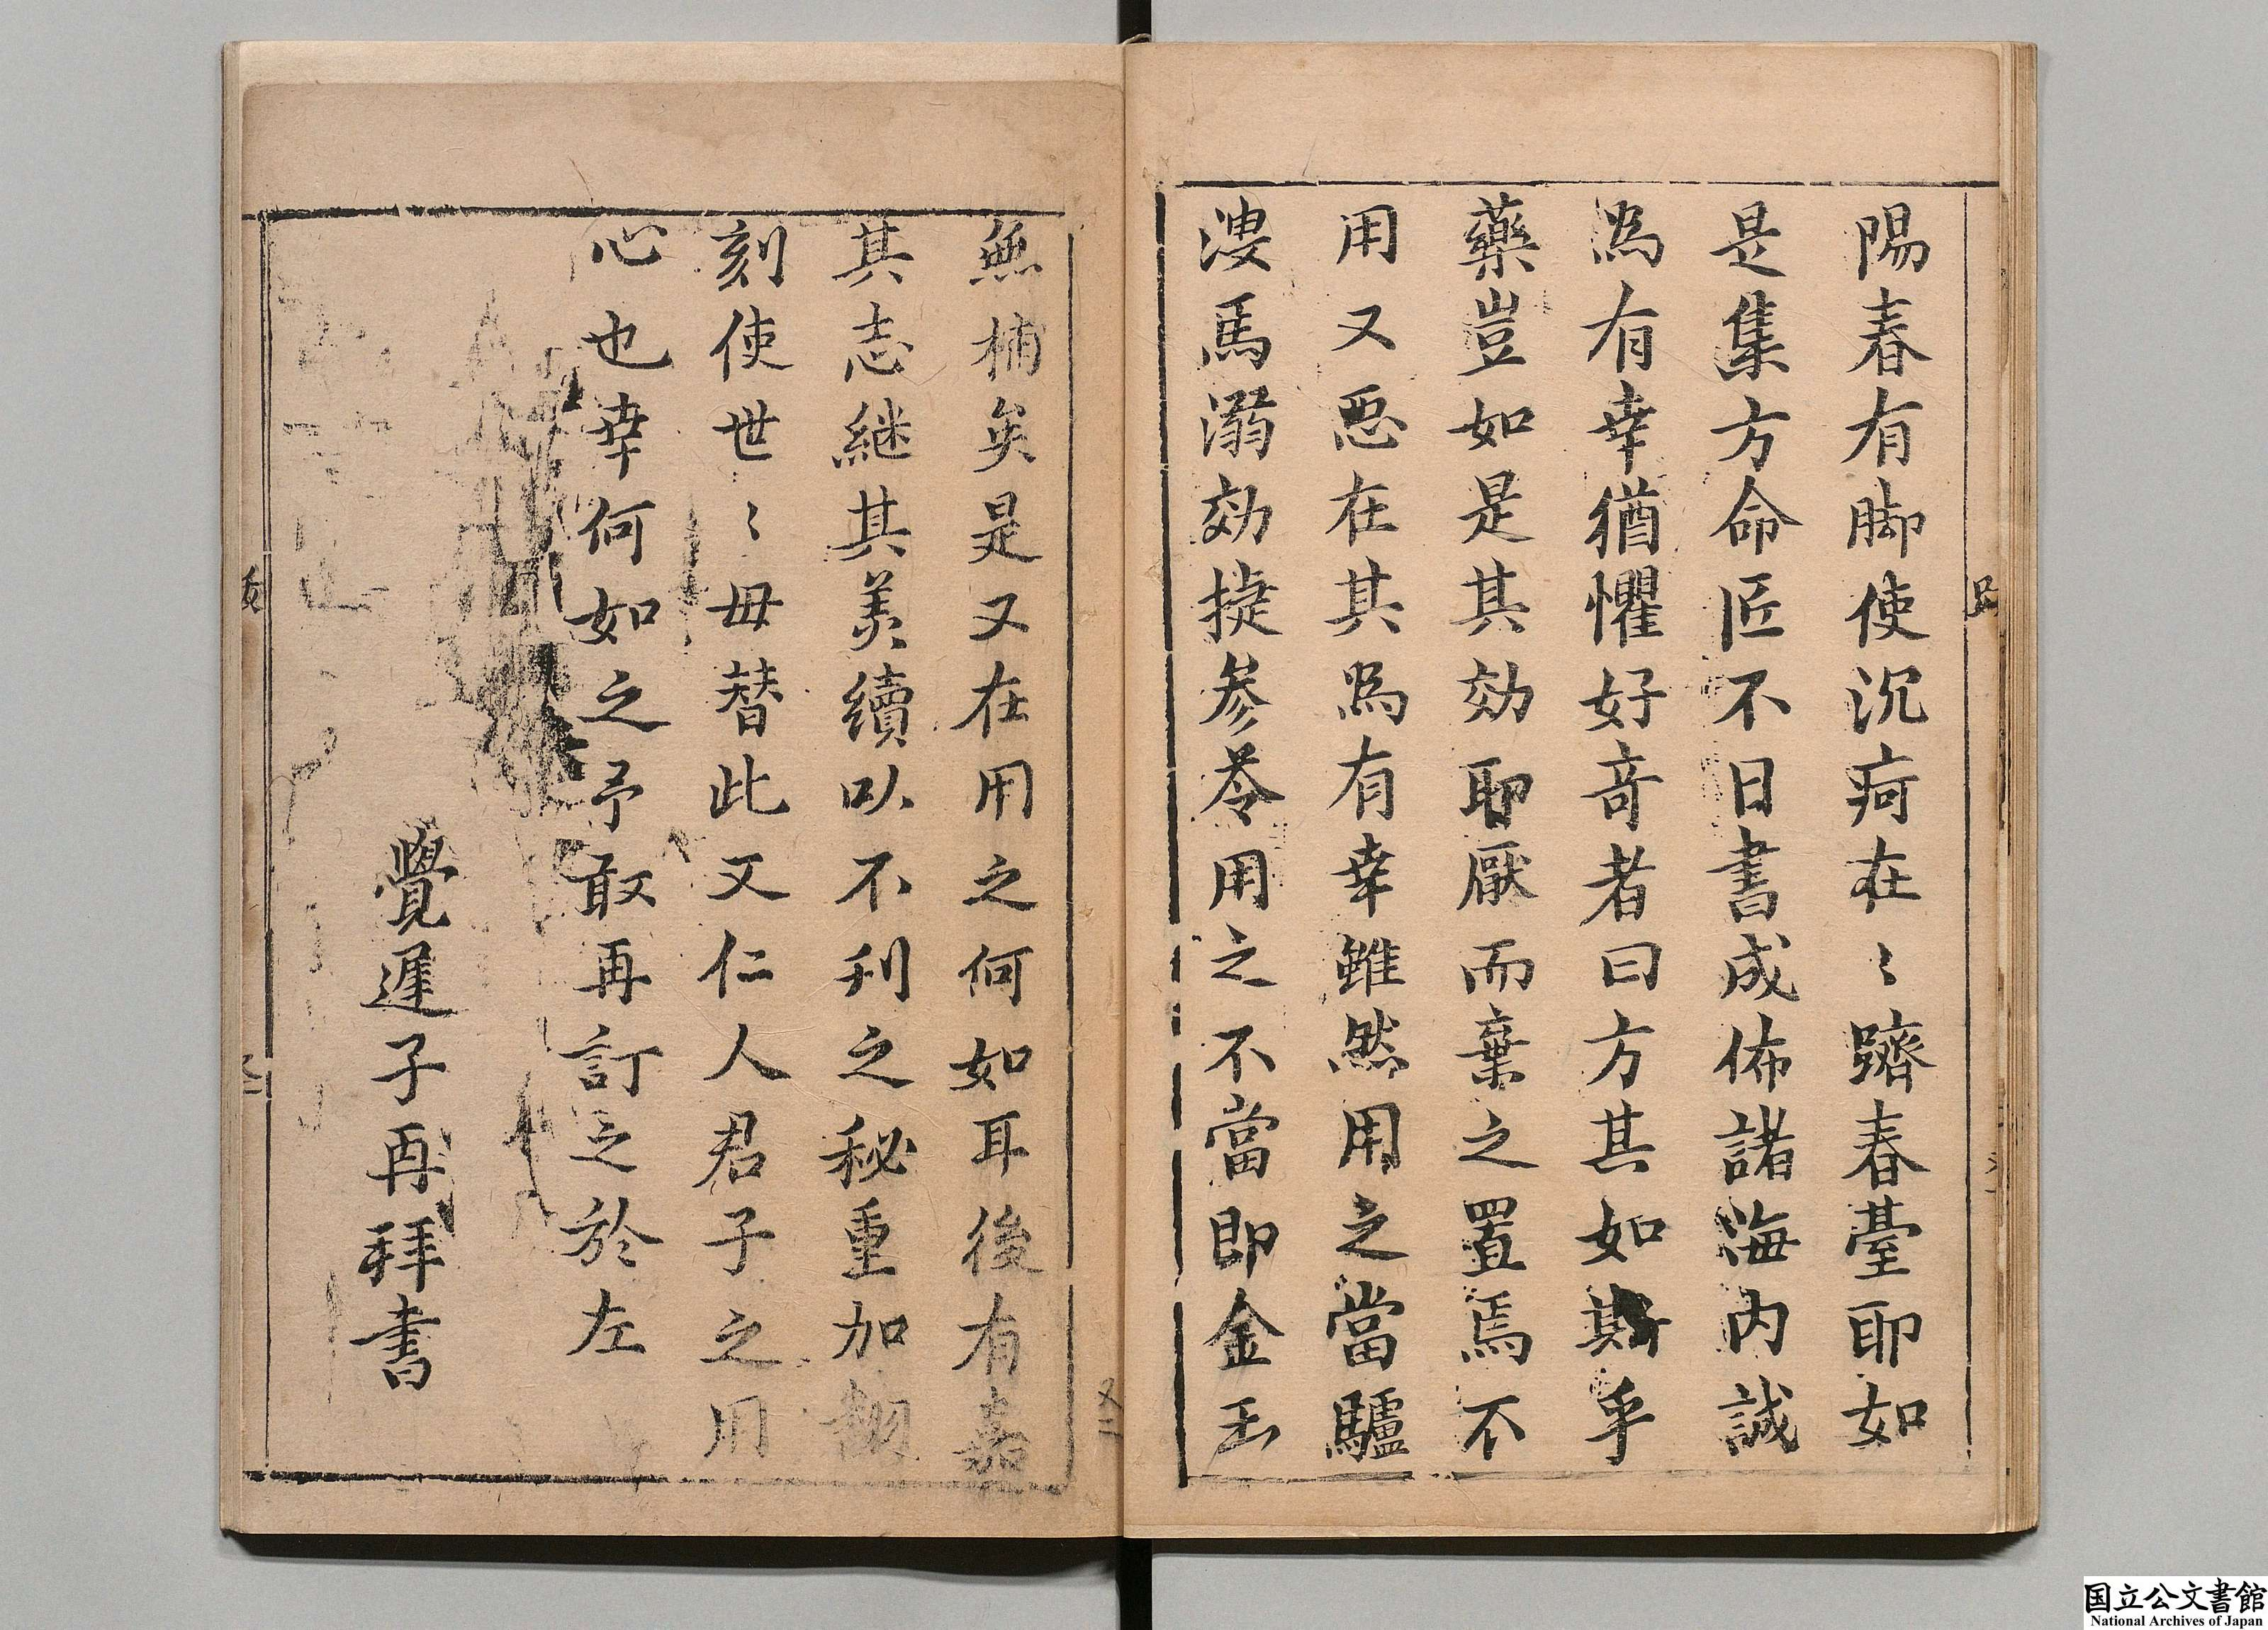 陽春有脚使沉疴在〻躋春臺耶如
是集方命匠不日書成佈諸海内誠
為有幸猶懼好竒者曰方其如斯乎
藥豈如是其効耶厭而棄之置焉不
用又惡在其為有幸雖然用之當驢
溲馬溺効捷參苓用之不當即金玉
無補矣是又在用之何如耳後有嘉
其志継其美續以不刋之秘重加
刻使世〻毋替此又仁人君子之用
心也幸何如之予敢再訂之於左
覺遲子再拜書
又二
国立公文書館
National Archives of Japan